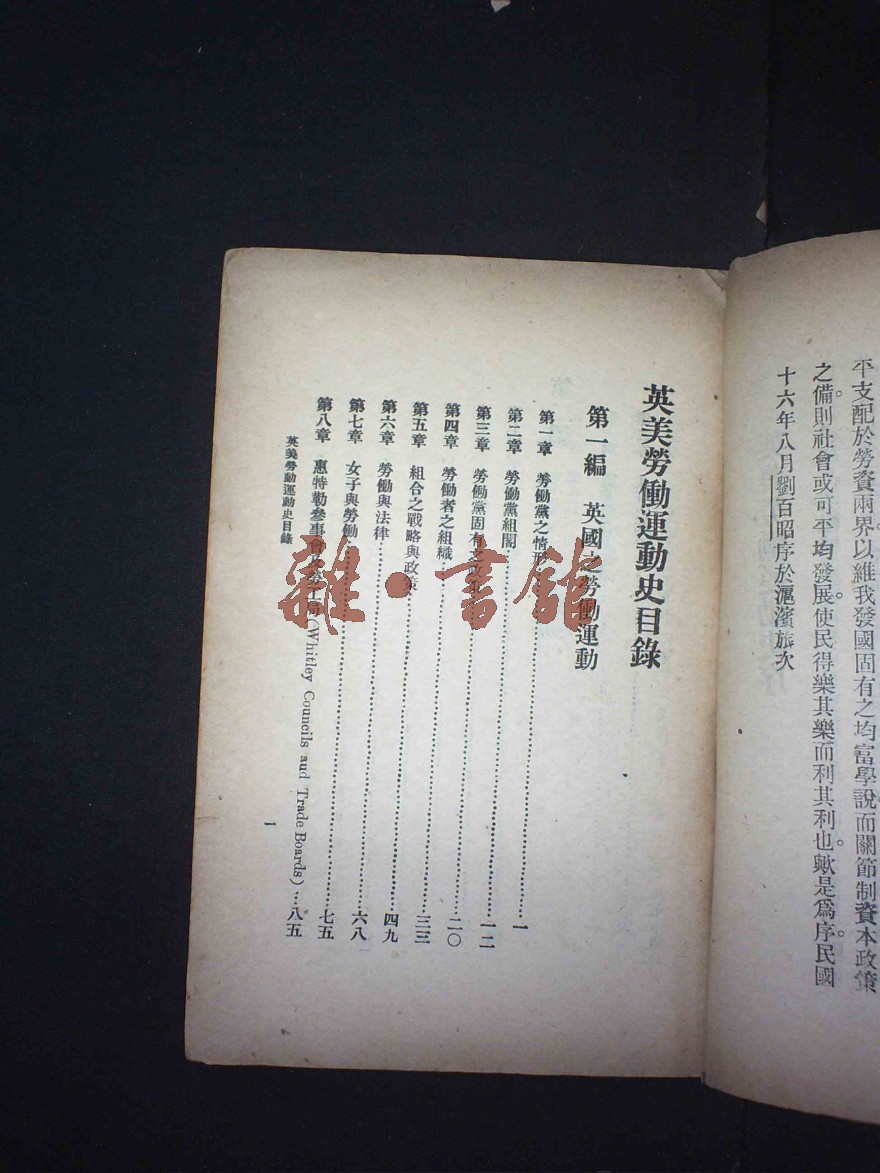 平支配於勞資兩界。以維我發國固有之均富學說而關節制資本政策
之備。則社會或可平均發展。使民得樂其樂而利其利也歟。是爲序。民國
十六年八月劉百昭序於滬濱旅次
英美勞働運動史目錄
第一編 英國之勞働運動
第一章 勞働黨之情形……一
第二章 勞働黨組閣……一二
第三章 勞働黨固有之政……二〇
第四章 勞働者之組織……三三
第五章 組合之戰略與政策……四九
第六章 勞働與法律……六八
第七章 女子與勞働……七五
第八章 惠特勒參事會及勞工局(Whitley Councils and Trade Boards)…八五
英美勞動運動史目錄
一
雜·書館